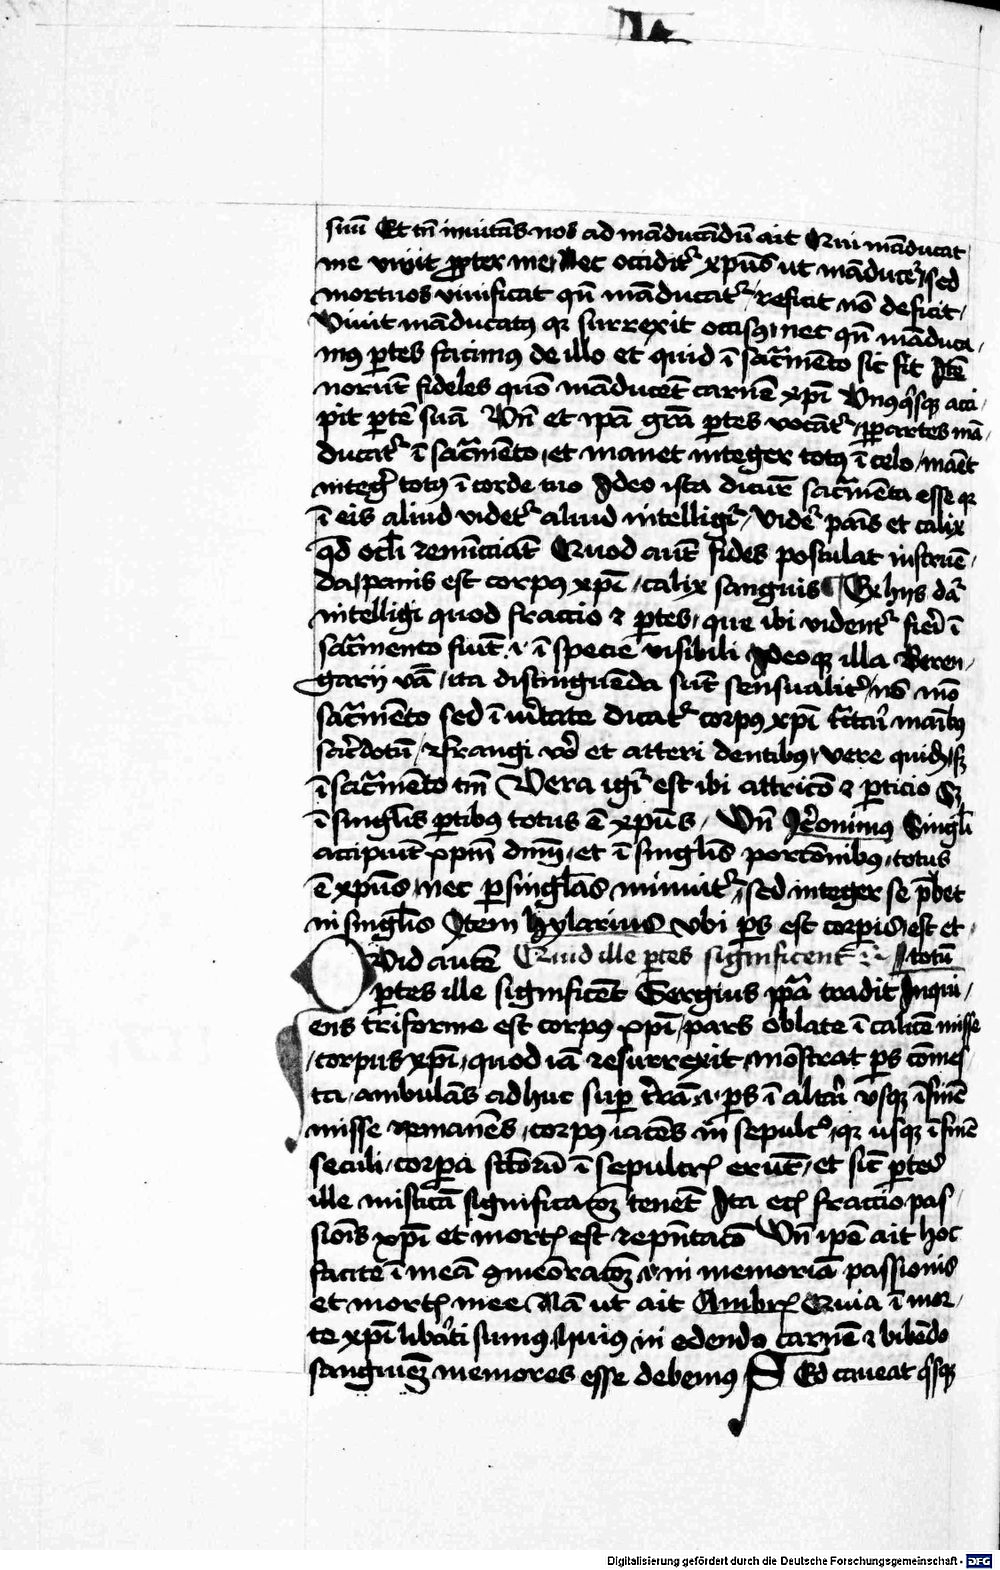 suū Et tn̄ inuitās nos ad māducādū ait Qui māducat
me viuit propter me Nec occidit᷑ xpūs ut māducet᷑ sed
mortuos viuificat qn̄ māducat᷑ reficit nō deficit
Viuit māducatꝰ qꝛ surrexit occisꝰ nec qn̄ māduca
mꝰ ꝑtes facimꝰ de illo et quid ī sac͛mēto sic fit Itē
norūt fideles quō māducēt carnē xp̄i Vnꝰqͥsqꝫ acci
pit ꝑtē suā Vn̄ et ip̄a gr̄a ꝑtes vocāt᷑ ꝑ partes mā
ducat᷑ ī sac͛mēto et manet integer totꝰ ī celo manet
integ͛ totꝰ ī corde tuo Ideo ista dicūt᷑ sac͛mēta esse qꝛ
ī eis aliud videt᷑ aliud intelligit᷑ Videt᷑ panis et calix
qd̄ ocl̄i renūciāt Quod autē fides postulat instruē
da panis est corpꝰ xp̄i calix sanguis Ex hijs dat᷑
intelligi quod fractio ⁊ ꝑtes que ibi vident᷑ fieri ī
sac͛mento fiūt .i. ī specie visibili Ideoqꝫ illa Beren
garij v̄ba ita distinguēda sūt sensualit͛ nō mō
sac͛mēto sed ī v͛itate dicat᷑ corpꝰ xp̄i t͛ctari manibꝰ
sac͛dotū ⁊ frangi v͛o et atteri dentibꝰ vere quidē sꝫ
ī sac͛mēto tm̄ Vera igit᷑ est ibi attricō ⁊ ꝑticio Sꝫ
ī singl̄is ꝑtibꝰ totus ē xpūs Vn̄ Ieronimus Singl̄i
accipiūt xpm̄ dnm̄ et ī singl̄is portōnibꝰ totus
ē xpūs nec ꝑ singl̄as minuit᷑ sed integer se p̄bet
in singl̄is Item hylarius vbi ꝑs est corpis est et
totū
Quid autē Quid ille ꝑtes significent
ꝑtes ille significēt Sergius pp̄a tradit Inqui
ens triforme est corpꝰ xp̄i pars oblate ī calicē misse
corpus xp̄i quod iā resurrexit mōstrat ꝑs cōmes
ta ambulās adhuc suꝑ t͛rā ⁊ ꝑs ī altari vsqꝫ ī finē
misse remanēs corpꝰ iacēs in sepulc͛o qꝛ usqꝫ ī finē
seculi corpa sc̄torū ī sepulcris erūt et sic ꝑtes
ille misticā significacōꝫ tenēt Ita et fractio pas
sionis xp̄i et mortis est rep̄ntacō Vn̄ ip̄e ait hoc
facite ī meā ꝯmeōracōꝫ .i. in memoriā passionis
et mortis mee Nā ut ait Ambr̄ Quia ī mor
te xp̄i lib͛ati sumꝰ huiꝰ in edendo carnē ⁊ bibēdo
sanguinē memores esse debemꝰ Sed caueat qͥsqꝫ
Digitalisierung gefördert durch die Deutsche Forschungsgemeinschaft - DFG